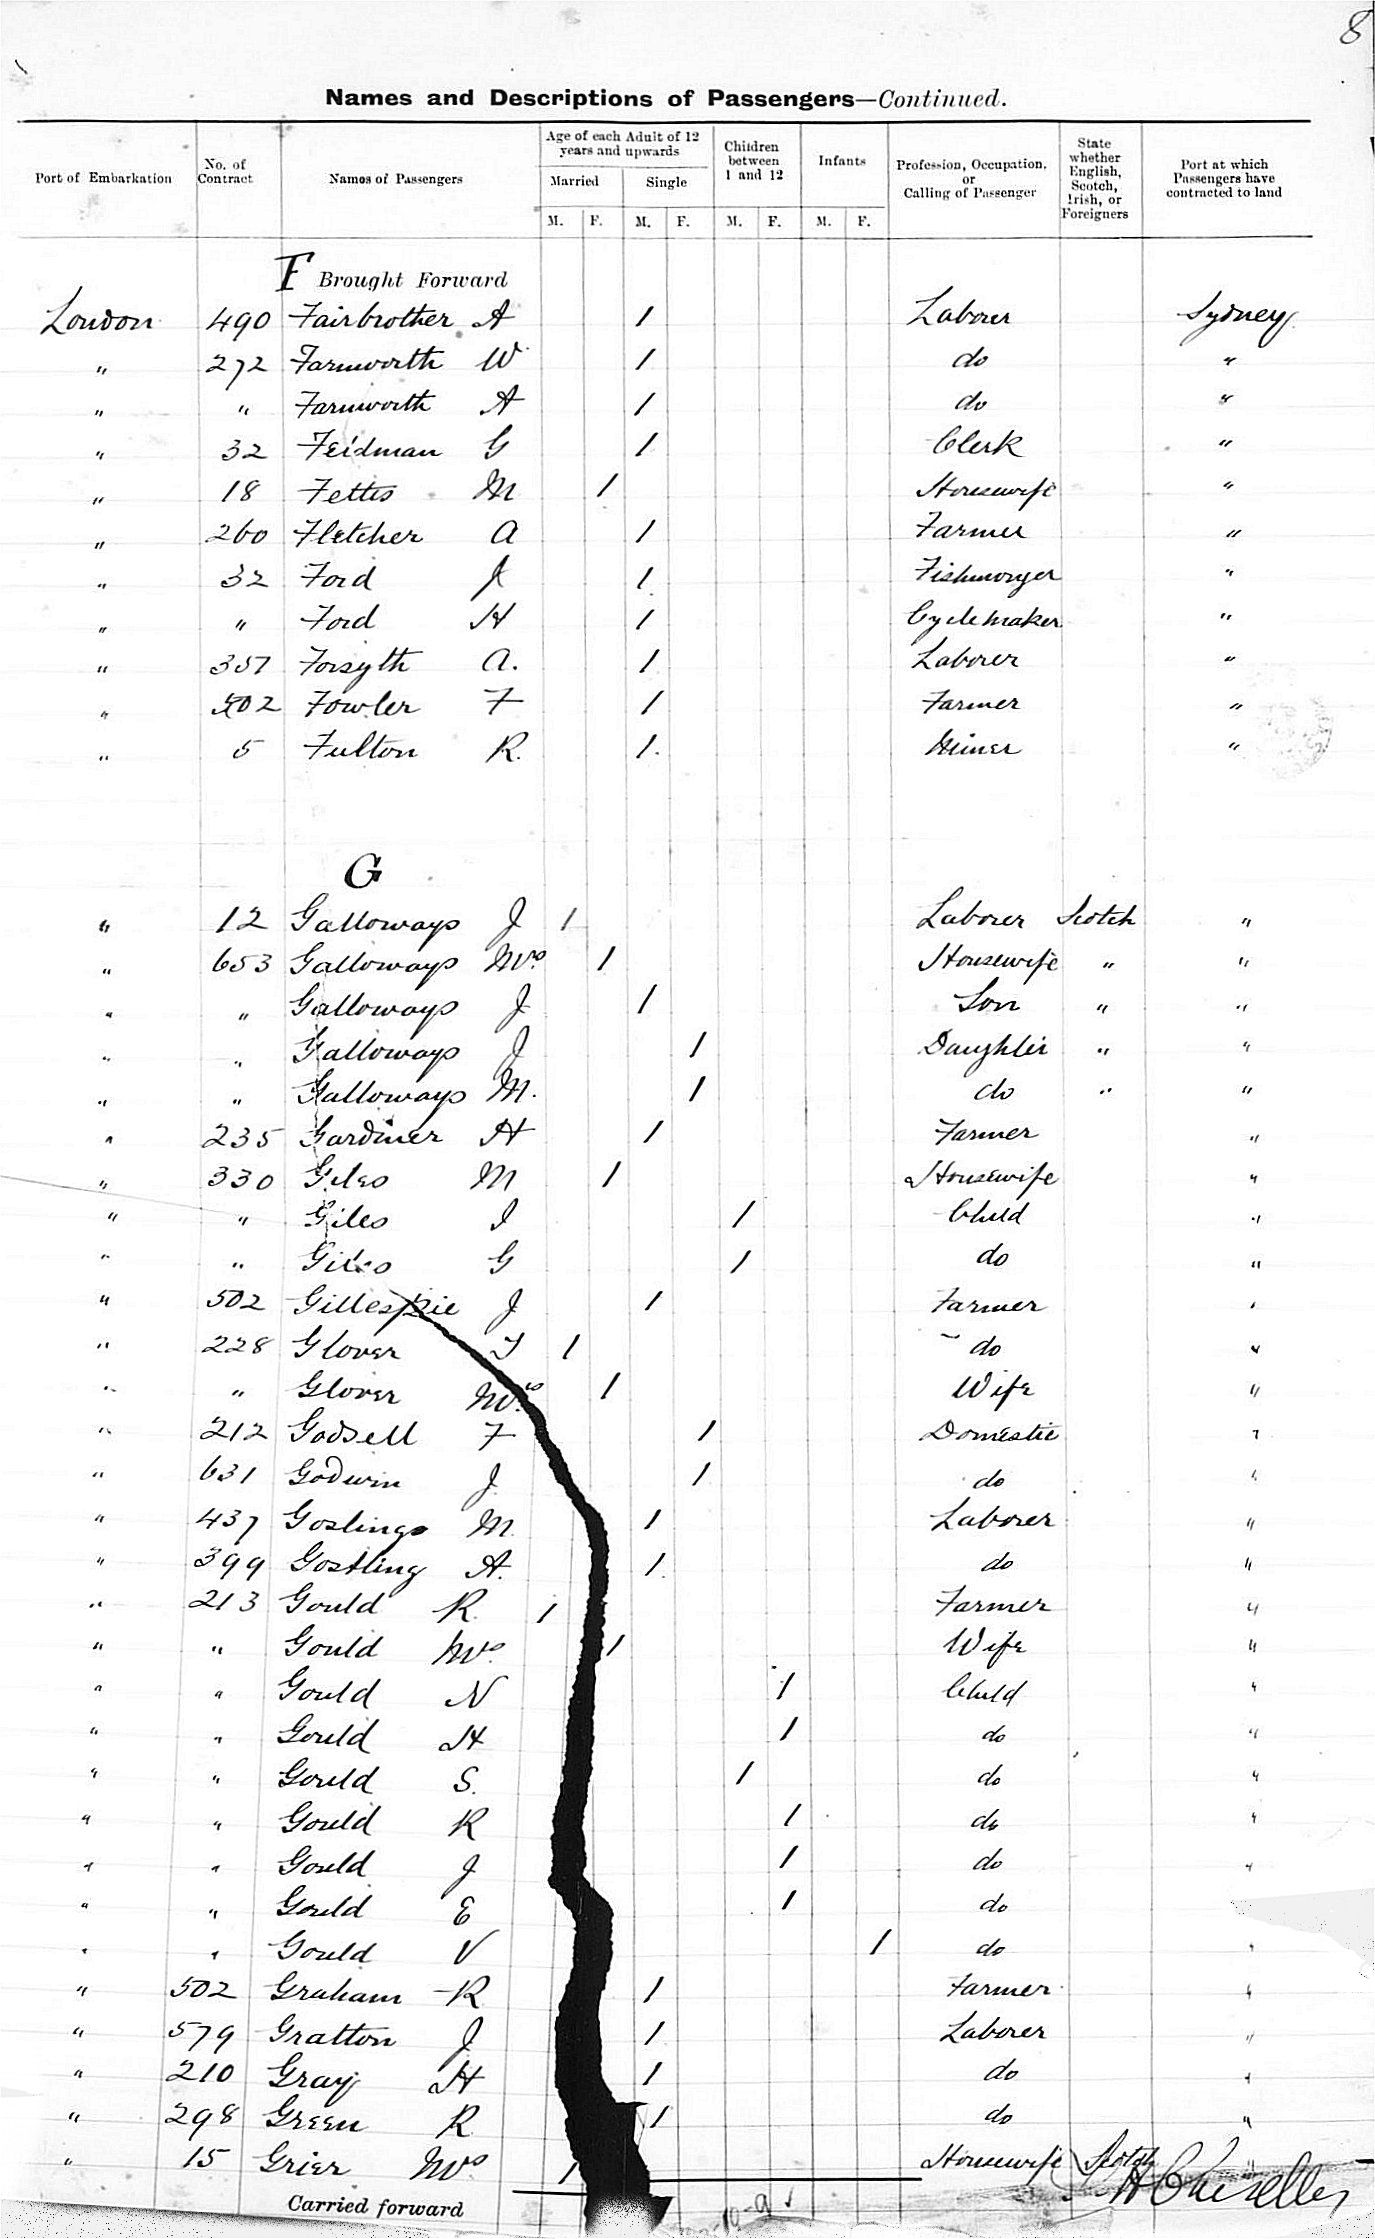 8
Names and Descriptions of Passengers—Continued.
Port of Embarkation | No. of Contract | Names of Passengers | Age of each Adult of 12 years and upwards | Children between 1 and 12 | Infants | Profession, Occupation, or Calling of Passenger | State whether English, Scotch, Irish, or Foreigners | Port at which Passengers have contracted to land
Married | Single
M. F. M. F. M. F. M. F.
F Brought Forward
London 490 Fairbrother A 1 Laborer Sydney
" 272 Farnworth W 1 do "
" " Farnworth A 1 do "
" 32 Feidman G 1 Clerk "
" 18 Fettes M 1 Housewife "
" 260 Fletcher A 1 Farmer "
" 32 Ford J 1 Fishmonger "
" " Ford H 1 Cyclemaker "
" 357 Forsyth A. 1 Laborer "
" 502 Fowler F 1 Farmer "
" 5 Fulton R. 1 Miner "
G
" 12 Galloways J 1 Laborer Scotch "
" 653 Galloways Mrs 1 Housewife " "
" " Galloways J 1 Son " "
" " Galloways J 1 Daughter " "
" " Galloways M. 1 do " "
" 235 Gardiner H 1 Farmer "
" 330 Giles M 1 Housewife "
" " Giles I 1 Child "
" " Giles G 1 do "
" 502 Gillespie J 1 Farmer "
" 228 Glover T 1 do "
" " Glover Mrs 1 Wife "
" 212 Godsell F 1 Domestic "
" 631 Godwin J 1 do "
" 437 Goslings M 1 Laborer "
" 399 Gostling A. 1 do "
" 213 Gould R 1 Farmer "
" " Gould Mrs 1 Wife "
" " Gould N 1 Child "
" " Gould H 1 do "
" " Gould S. 1 do "
" " Gould R 1 do "
" " Gould J 1 do "
" " Gould E 1 do "
" " Gould V 1 do "
" 502 Graham R 1 Farmer "
" 579 Gratton J 1 Laborer "
" 210 Gray H 1 do "
" 298 Green R 1 do "
" 15 Grier Mrs 1 Housewife Scotch
Carried forward